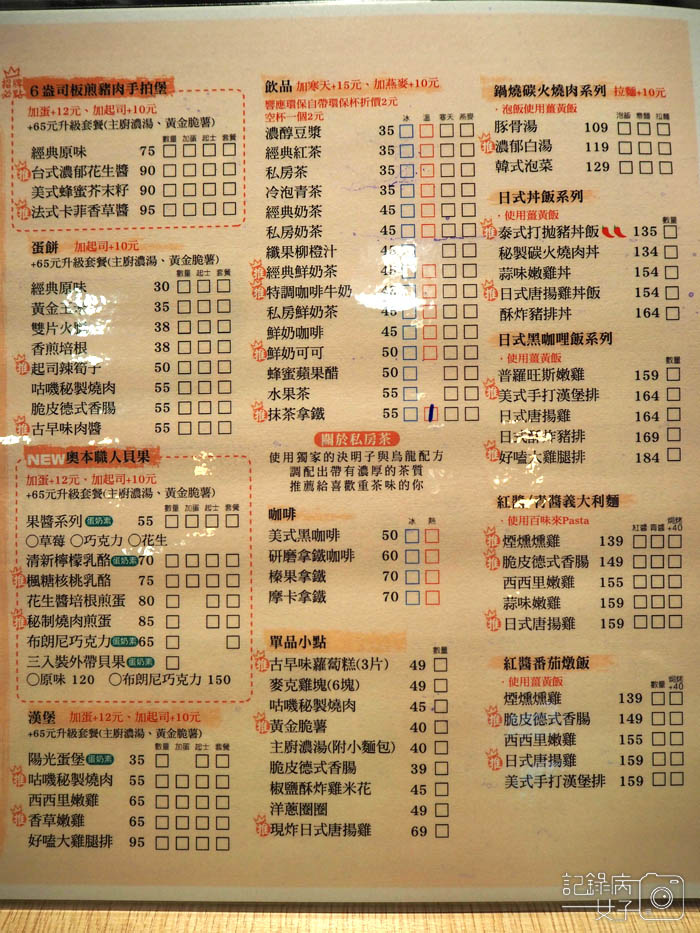 招牌
必點
6盎司板煎豬肉手拍堡
加蛋+12元、加起司+10元
+65元升級套餐(主廚濃湯、黃金脆薯)
數量 加蛋 起士 套餐
經典原味 75
推 台式濃郁花生醬 90
美式蜂蜜芥末籽 90
推 法式卡菲香草醬 95
蛋餅 加起司+10元
+65元升級套餐(主廚濃湯、黃金脆薯)
數量 起士 套餐
經典原味 30
黃金玉米 35
雙片火腿 38
香煎培根 38
推 起司辣筍子 50
咕嘰秘製燒肉 55
脆皮德式香腸 55
推 古早味肉醬 55
NEW 奧本職人貝果
加蛋+12元、加起司+10元
+65元升級套餐(主廚濃湯、黃金脆薯)
數量 加蛋 起士 套餐
果醬系列 蛋奶素 55
〇草莓 〇巧克力 〇花生
清新檸檬乳酪 蛋奶素 70
推 楓糖核桃乳酪 75
花生醬培根煎蛋 80
推 秘制燒肉煎蛋 85
布朗尼巧克力 蛋奶素 65
三入裝外帶貝果 蛋奶素
〇原味 120 〇布朗尼巧克力 150
漢堡 加蛋+12元、加起司+10元
+65元升級套餐(主廚濃湯、黃金脆薯)
數量 加蛋 起士 套餐
陽光蛋堡 蛋奶素 35
推 咕嘰秘製燒肉 55
西西里嫩雞 65
推 香草嫩雞 65
好嗑大雞腿排 95
飲品 加寒天+15元、加燕麥+10元
響應環保自帶環保杯折價2元
空杯一個2元
冰 溫 寒天 燕麥
濃醇豆漿 35
經典紅茶 35
私房茶 35
冷泡青茶 35
經典奶茶 45
私房奶茶 45
纖果柳橙汁 45
推 經典鮮奶茶 45
推 特調咖啡牛奶 45
私房鮮奶茶 45
鮮奶咖啡 45
推 鮮奶可可 50
蜂蜜蘋果醋 50
水果茶 55
推 抹茶拿鐵 55
關於私房茶
使用獨家的決明子與烏龍配方
調配出帶有濃厚的茶質
推薦給喜歡重茶味的你
咖啡
冰 熱
美式黑咖啡 50
研磨拿鐵咖啡 60
榛果拿鐵 70
摩卡拿鐵 70
單品小點
數量
推 古早味蘿蔔糕(3片) 49
麥克雞塊(6塊) 49
咕嘰秘製燒肉 45
推 黃金脆薯 40
主廚濃湯(附小麵包) 40
脆皮德式香腸 39
椒鹽酥炸雞米花 45
洋蔥圈圈 49
推 現炸日式唐揚雞 69
鍋燒碳火燒肉系列 拉麵+10元
·泡飯使用薑黃飯
泡飯 意麵 拉麵
豚骨湯 109
推 濃郁白湯 119
韓式泡菜 129
日式丼飯系列
·使用薑黃飯
數量
推 泰式打拋豬丼飯 135
秘製碳火燒肉丼 134
蒜味嫩雞丼 154
推 日式唐揚雞丼飯 154
酥炸豬排丼 164
日式黑咖哩飯系列
·使用薑黃飯
數量
普羅旺斯嫩雞 159
推 美式手打漢堡排 164
日式唐揚雞 164
日式酥炸豬排 169
推 好嗑大雞腿排 184
紅醬/青醬義大利麵
·使用百味來Pasta
紅醬 青醬 焗烤+40
推 煙燻燻雞 139
推 脆皮德式香腸 149
西西里嫩雞 155
蒜味嫩雞 159
推 日式唐揚雞 159
紅醬番茄燉飯
·使用薑黃飯
數量 焗烤+40
煙燻燻雞 139
推 脆皮德式香腸 149
西西里嫩雞 155
推 日式唐揚雞 159
美式手打漢堡排 159
記錄病女子